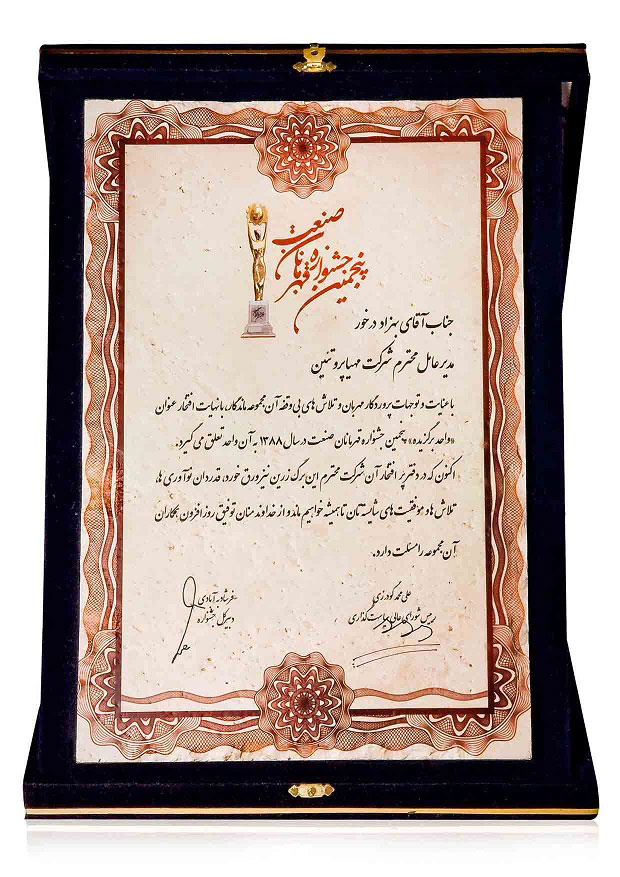 پنجمین جشنواره قهرمانان صنعت
جناب آقای بهزاد درخور
مدیرعامل محترم شرکت مهیاپروتئین
با عنایت و توجهات پروردگار مهربان و تلاش های بی وقفه آن مجموعه ماندگار، با نهایت افتخار عنوان
«واحد برگزیده» پنجمین جشنواره قهرمانان صنعت در سال ۱۳۸۸ به آن واحد تعلق می گیرد.
اکنون که در دفتر پر افتخار آن شرکت محترم این برگ زرین نیز ورق خورد، قدردان نوآوری ها،
تلاش ها و موفقیت های شایسته تان تا همیشه خواهیم ماند و از خداوند منان توفیق روزافزون همکاران
آن مجموعه را مسئلت دارد.
علی محمد گودرزی
رییس شورای عالی سیاست گذاری
فرشاد مرآبادی
دبیرکل جشنواره